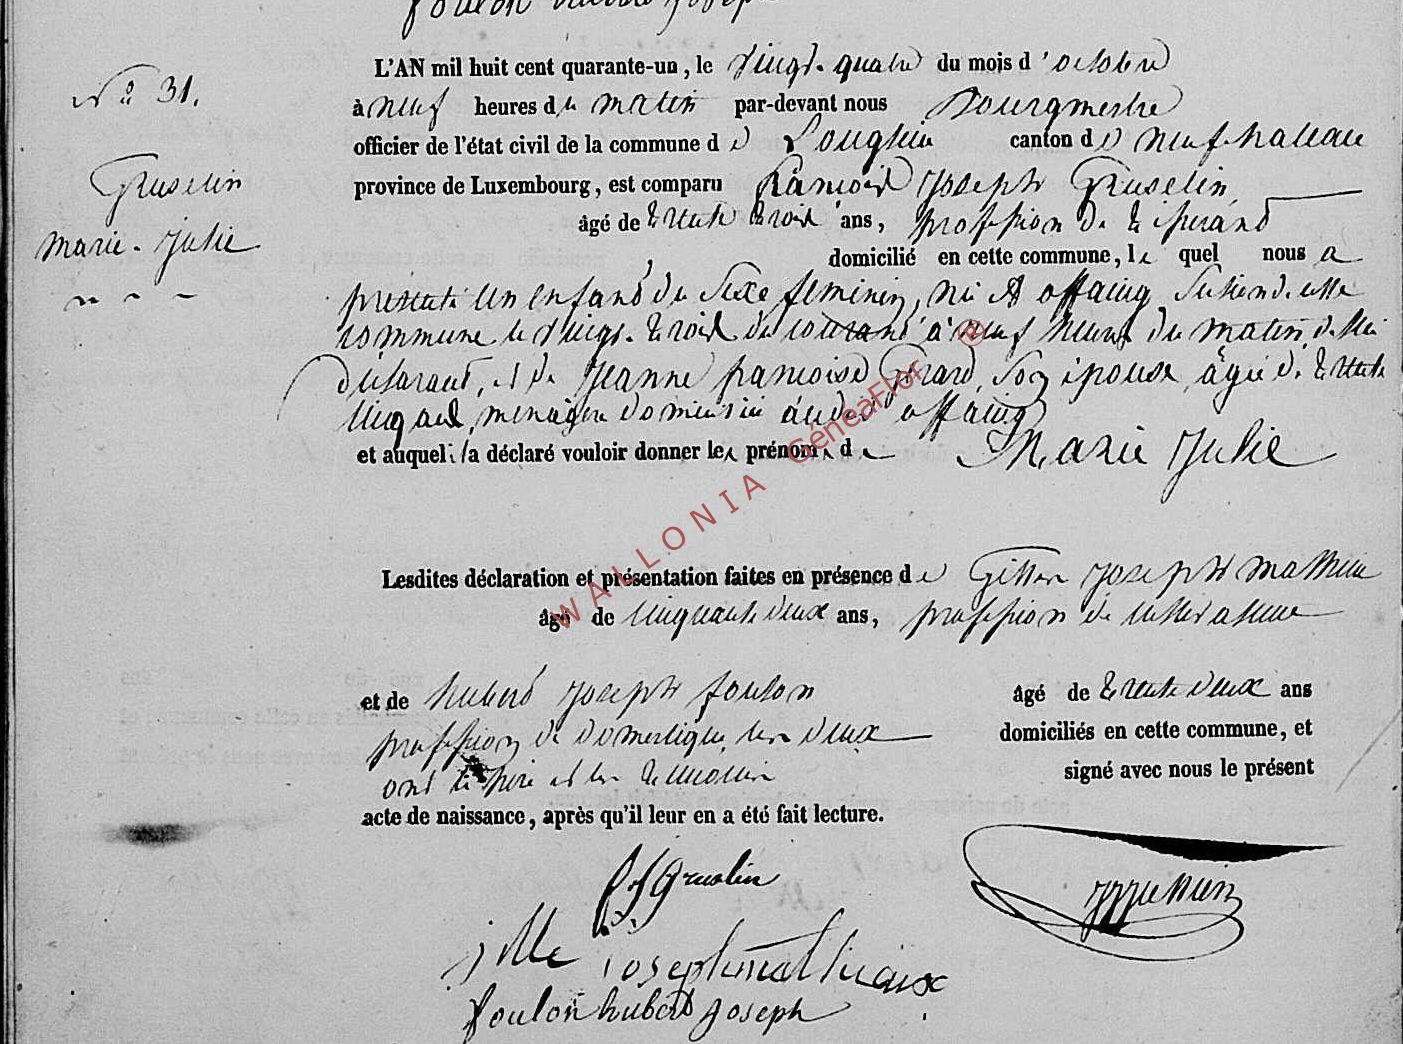 foulon hubert joseph
L'AN mil huit cent quarante-un, le vingt-quatre du mois d'octobre
N° 31.
à neuf heures du matin par-devant nous Bourgmestre
officier de l'état civil de la commune de Longlier canton de neufchateau
Gruselin
province de Luxembourg, est comparu François Joseph Gruselin
âgé de trente trois ans, profession de tisserand
marie-Julie
domicilié en cette commune, le quel nous a
présenté un enfant du sexe feminin, né à offaing section de cette
commune le vingt-trois du courant à neuf heures du matin, de lui
déclarant, et de Jeanne françoise Girard, son épouse, âgée de trente
cinq ans, menagère domiciliée audit offaing
et auquel il a déclaré vouloir donner les prénoms de Marie Julie
Lesdites déclaration et présentation faites en présence de Joseph mathieu
âgé de cinquante deux ans, profession de cultivateur
et de hubert Joseph foulon âgé de trente deux ans
profession de domestique, les deux domiciliés en cette commune, et
ont le père et les temoins signé avec nous le présent
acte de naissance, après qu'il leur en a été fait lecture.
f J Gruslin
joseph mathieux
foulon hubert joseph
WALLONIA GénéaFlor ®